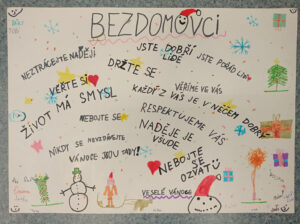 BEZDOMOVCI
NEZTRÁCEJTE NADĚJI
JSTE DOBŘÍ LIDÉ
JSTE POŘÁD LIDÉ
DRŽTE SE
VĚŘTE SI
VĚŘÍME VE VÁS
ŽIVOT MÁ SMYSL
KAŽDÝ Z VÁS JE V NĚČEM DOBRÝ
NEBOJTE SE
RESPEKTUJEME VÁS
NADĚJE JE
VŠUDE
NIKDY SE NEVZDÁVEJTE
VÁNOCE JSOU TADY!
NEBOJTE
SE
OZVAT
VESELÉ VÁNOCE